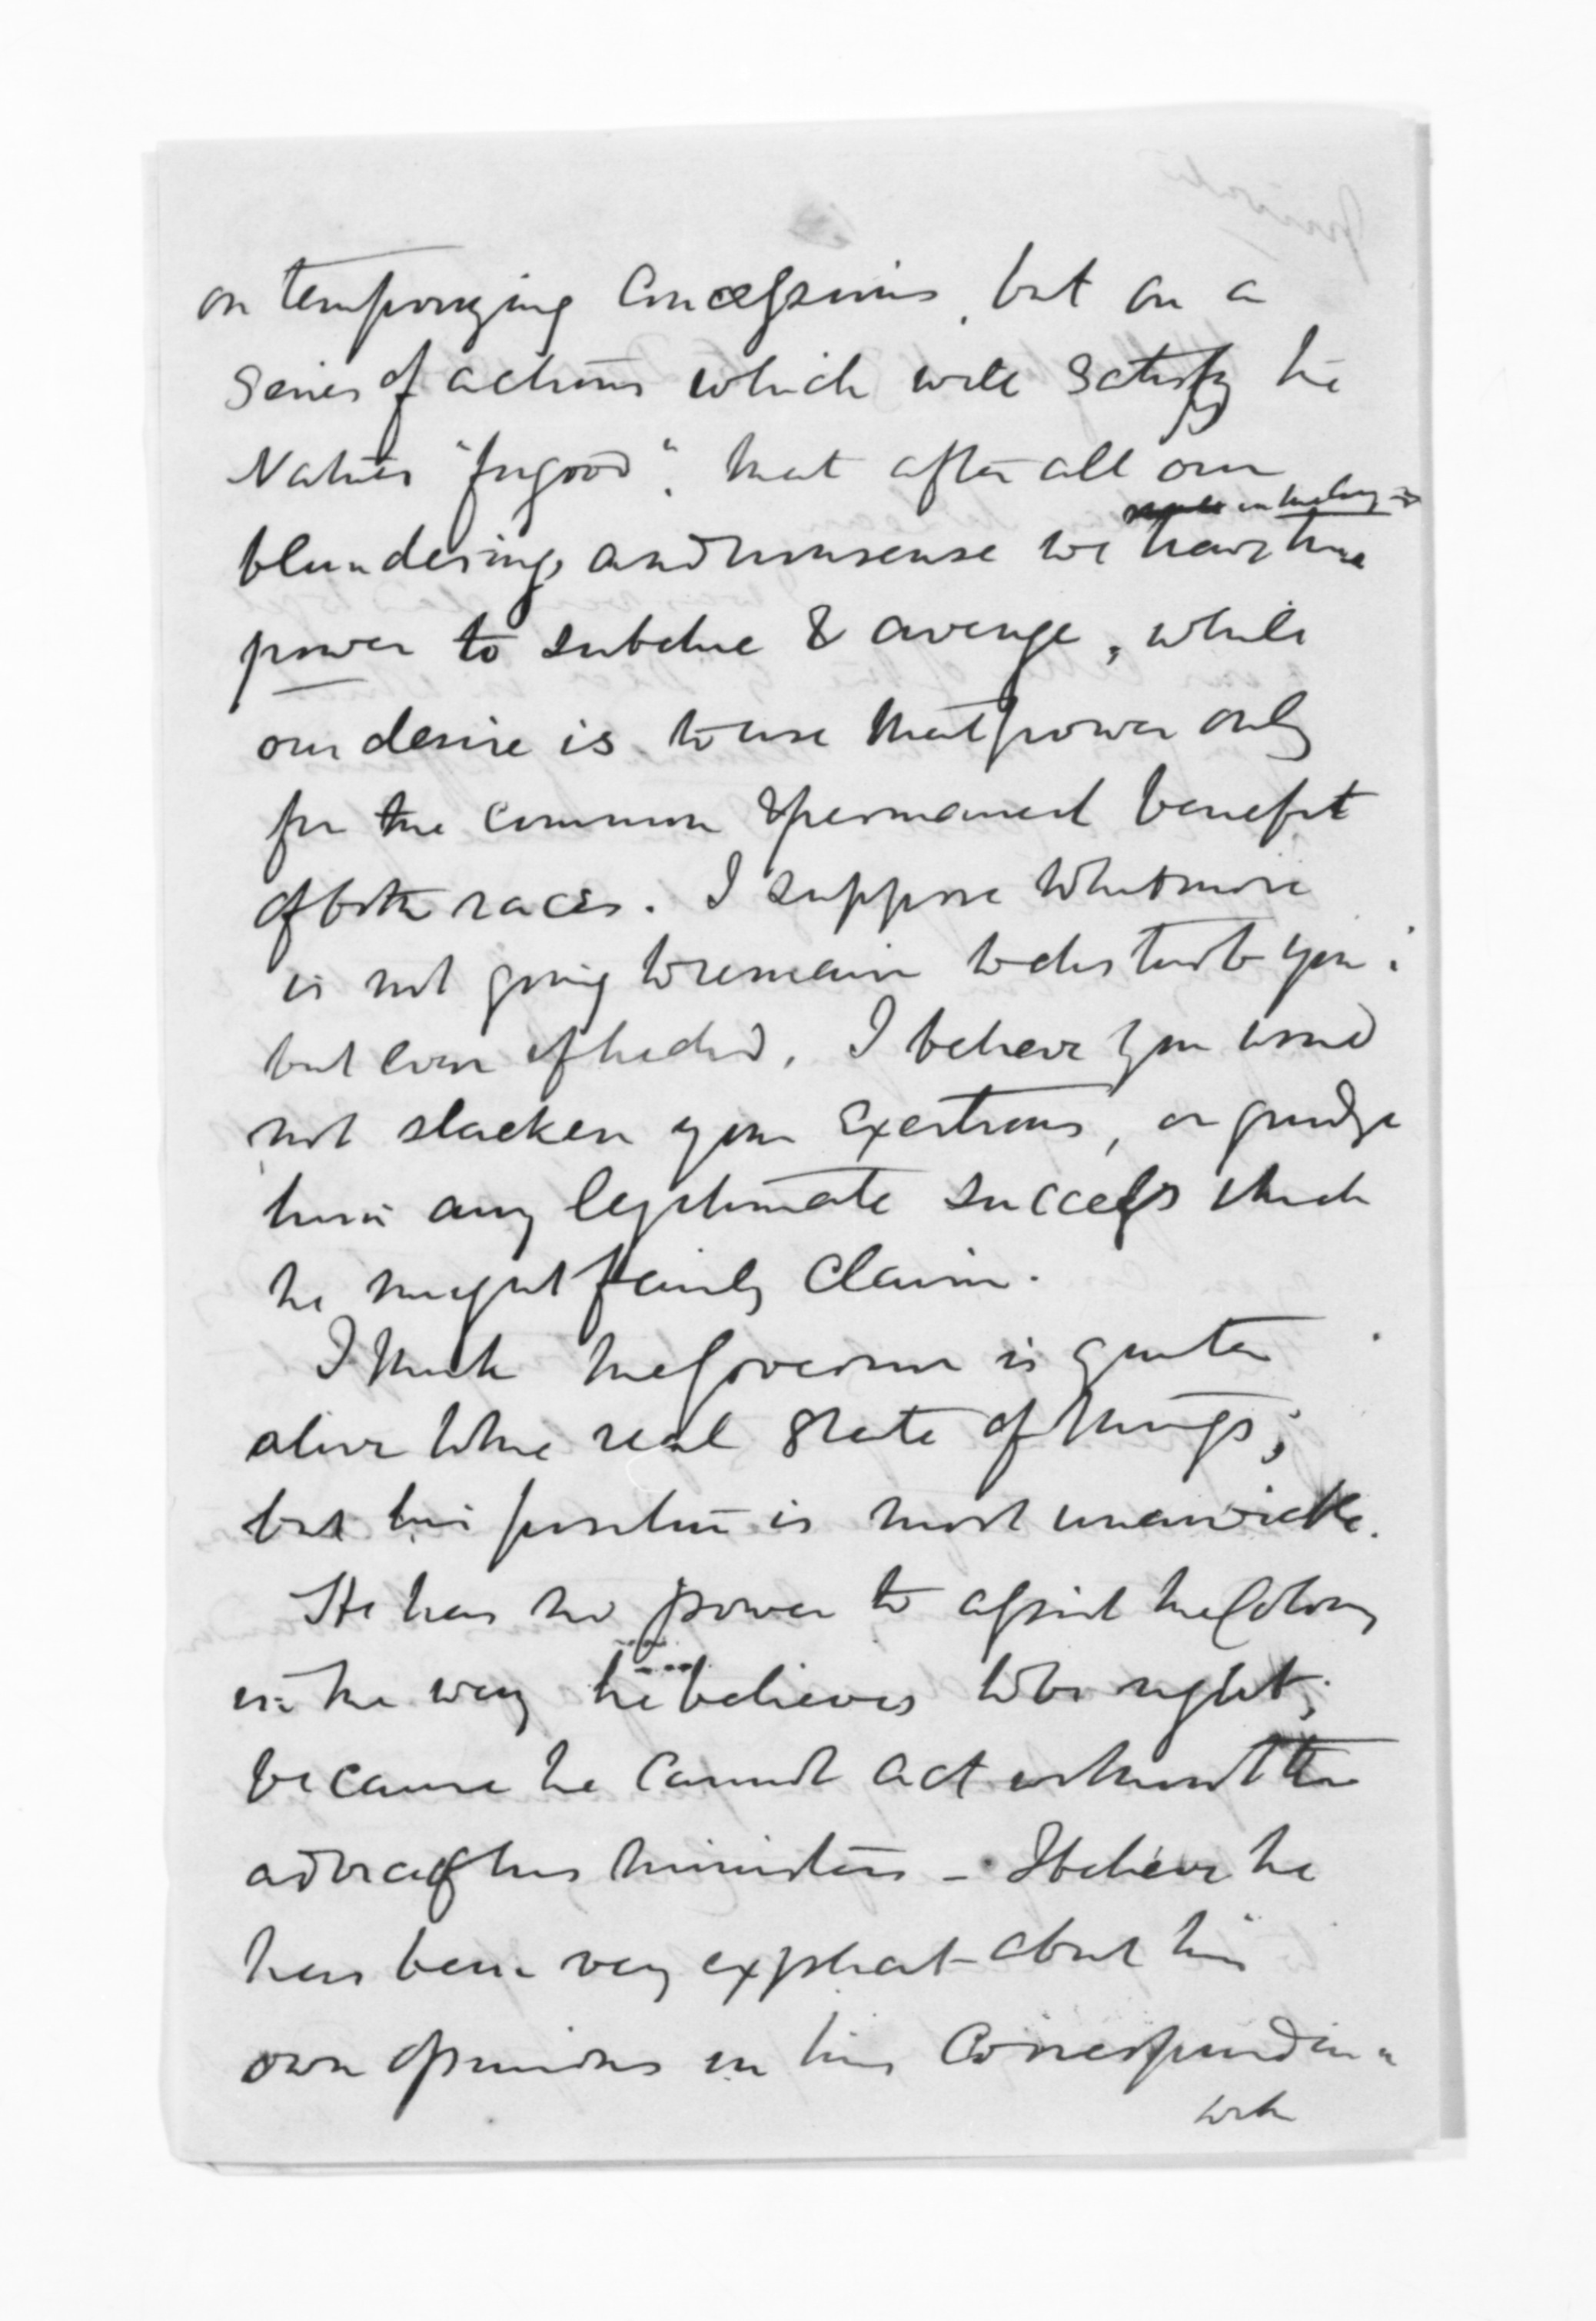 on temporizing Concessions, but on a
series of actions which will satisfy the
Natives "for good". that after all our
in the long
blundering, and nonsense we have the
power to subdue & avenge, while
our desire is to use that power only
for the common & permanent benefit
of both races. I suppose Whitmore
is not going to remain to disturb you:
but even if he did, I believe you would
not slacken your Exertions, or grudge
him any legitimate success which
he might fairly claim.
I think the Governor is quite
alive to the real State of things;
but his position is most unenviable.
He has no power to assist the Colony
in the way he believes to be right;
because he cannot act without the
advice of his ministers - I believe he
has been very explicit about his
own opinions in his Correspondence
with